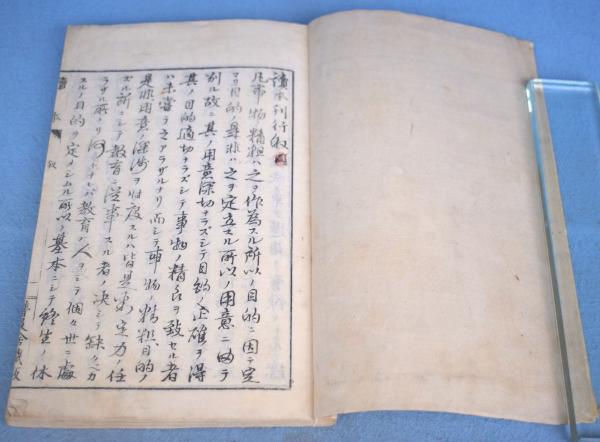 讀本刊行叙
凡事物ノ精粗ハ之ヲ作為スル所以ノ目的ニ因テ定
マリ目的ノ是非ハ之ヲ定立スル所以ノ用意ニ由テ
別ル故ニ其ノ用意深切ナラズシテ目的ノ正確ヲ得
其ノ目的適切ナラズシテ事物ノ精良ヲ致セル者
ハ未嘗テ之アラザルナリ而シテ事物ノ精粗目的ノ
是非用意ノ深浅ヲ忖度スルハ皆是
ズル所ニシテ教育ニ従事スル者ノ決シテ缺クベカ
ラザル所ナリ何トナレバ教育ノ人ヲシテ個々世ニ處
スルノ目的ヲ定メシムル所以ノ基本ニシテ終生ノ休
讀本 叙